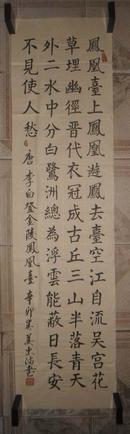 鳳凰臺上鳳凰遊鳳去臺空江自流吴宫花
草埋幽徑晉代衣冠成古丘三山半落青天
外二水中分白鷺洲總為浮雲能蔽日長安
不見使人愁 唐李白登金陵鳳凰臺 辛卯